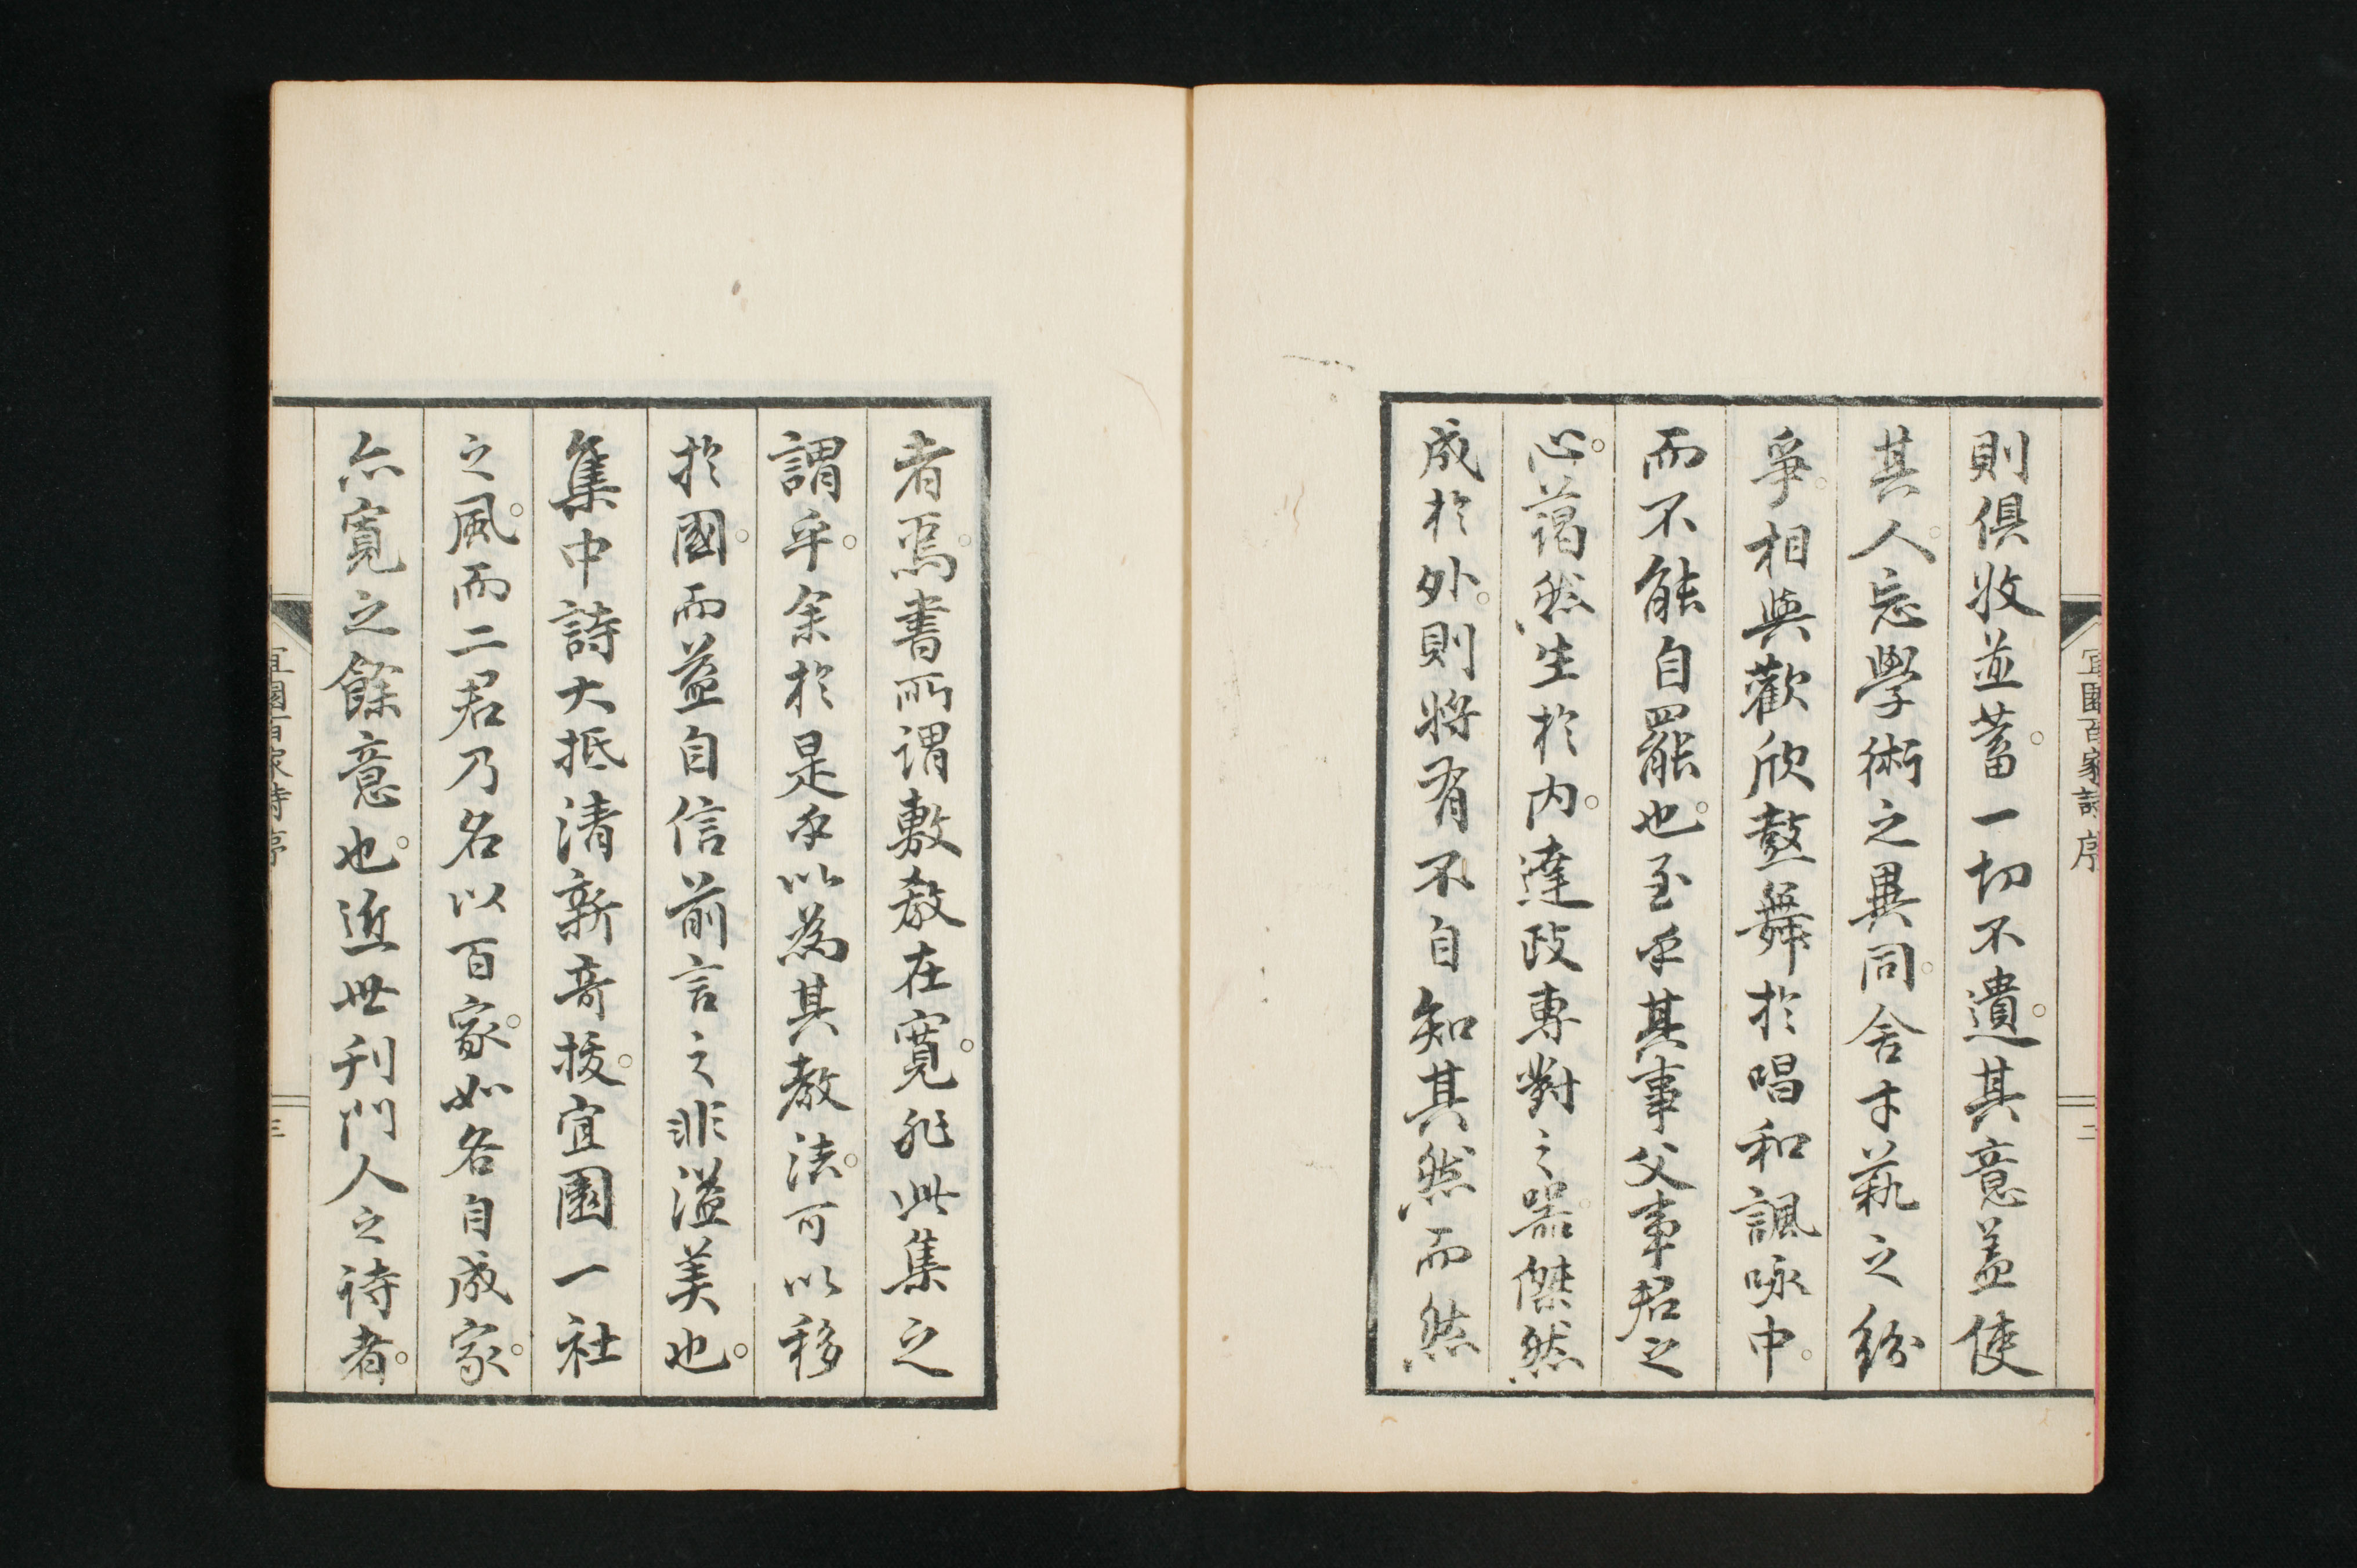 宜園百家詩序
二
則俱收並蓄。一切不遺。其意蓋使
其人。忘學術之異同。舍才藝之紛
爭。相與歡欣鼓舞於唱和諷咏中。
而不能自罷也。至乎其事父事君之
心。藹然生於内。達政專對之器。傑然
成於外。則將有不自知其然而然
者焉。書所謂敷教在寬。非此集之
謂乎。余於是乎以為其教法。可以移
於國。而益自信前言之非溢美也。
集中詩大抵清新奇拔。宜園一社
之風。而二君乃名以百家。如各自成家。
亦寬之餘意也。近世刊門人之詩者。
宜園百家詩序
三